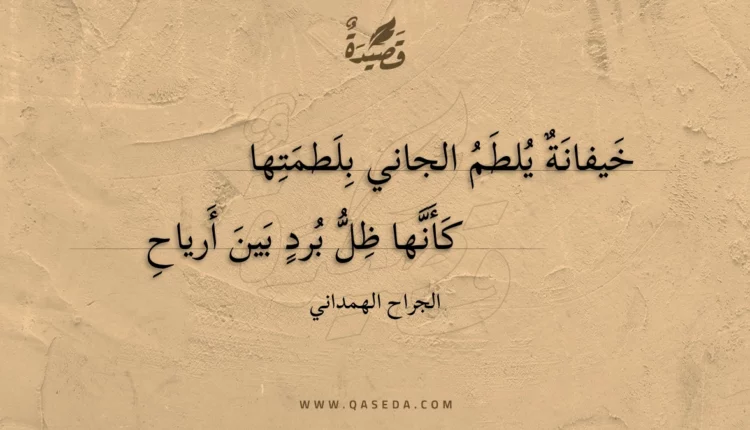 قَصِيدَةٌ
خَيفانَةٌ يُلطَمُ الجاني بِلَطمَتِها
كَأَنَّها ظِلُّ بُردٍ بَينَ أَرياحِ
الجراح الهمداني
WWW.QASEDA.COM